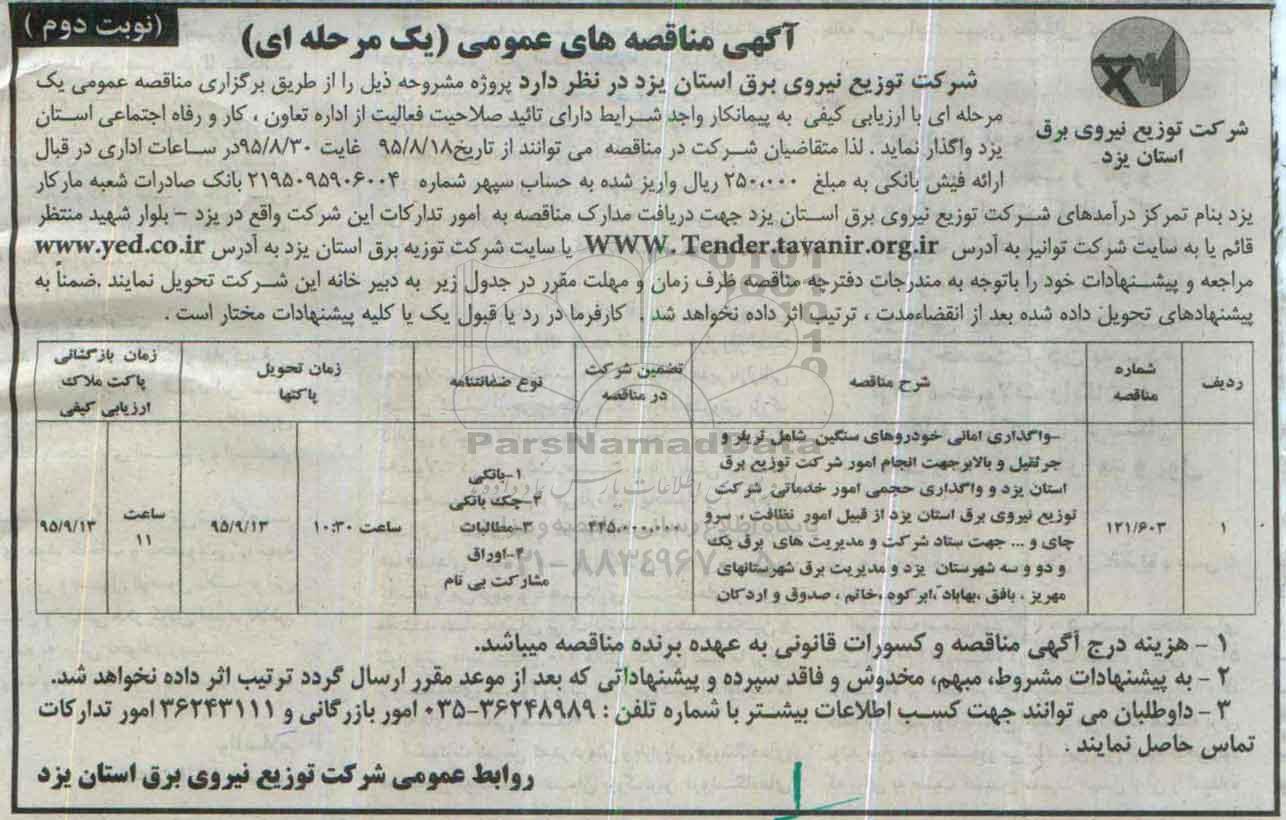 (نوبت دوم)
آگهی مناقصه های عمومی (یک مرحله ای)
شرکت توزیع نیروی برق
استان یزد
شرکت توزیع نیروی برق استان یزد در نظر دارد پروژه مشروحه ذیل را از طریق برگزاری مناقصه عمومی یک
مرحله ای با ارزیابی کیفی به پیمانکار واجد شرایط دارای تائید صلاحیت فعالیت از اداره تعاون ، کار و رفاه اجتماعی استان
یزد واگذار نماید . لذا متقاضیان شرکت در مناقصه می توانند از تاریخ ۹۵/۸/۱۸ غایت ۹۵/۸/۳۰در ساعات اداری در قبال
ارائه فیش بانکی به مبلغ ۲۵۰،۰۰۰ ریال واریز شده به حساب سپهر شماره ۲۱۹۵۰۹۵۹۰۶۰۰۴ بانک صادرات شعبه مارکار
یزد بنام تمرکز درآمدهای شرکت توزیع نیروی برق استان یزد جهت دریافت مدارک مناقصه به امور تدارکات این شرکت واقع در یزد – بلوار شهید منتظر
قائم یا به سایت شرکت توانیر به آدرس WWW. Tender.tavanir.org.ir یا سایت شرکت توزیه برق استان یزد به آدرس www.yed.co.ir
مراجعه و پیشنهادات خود را باتوجه به مندرجات دفترچه مناقصه ظرف زمان و مهلت مقرر در جدول زیر به دبیر خانه این شرکت تحویل نمایند .ضمناً به
پیشنهادهای تحویل داده شده بعد از انقضاءمدت ، ترتیب اثر داده نخواهد شد . کارفرما در رد یا قبول یک یا کلیه پیشنهادات مختار است .
ردیف
شماره
مناقصه
شرح مناقصه
تضمین شرکت
در مناقصه
نوع ضمانتنامه
زمان تحویل
پاکتها
زمان بازگشائی
پاکت ملاک
ارزیابی کیفی
۱
۱۲۱/۶۰۳
-واگذاری امانی خودروهای سنگین شامل تریلر و
جرثقیل و بالابرجهت انجام امور شرکت توزیع برق
استان یزد و واگذاری حجمی امور خدماتی شرکت
توزیع نیروی برق استان یزد از قبیل امور نظافت ، سرو
چای و ... جهت ستاد شرکت و مدیریت های برق یک
و دو و سه شهرستان یزد و مدیریت برق شهرستانهای
مهریز ، بافق ،بهاباد ،ابرکوه،خاتم ، صدوق و اردکان
۴۴۵،۰۰۰،۰۰۰
۱-بانکی
۲-چک بانکی
۳-مطالبات
۴-اوراق
مشارکت بی نام
ساعت ۱۰:۳۰
۹۵/۹/۱۳
ساعت
۱۱
۹۵/۹/۱۳
ParsNamadData
۰۲۱-۸۸۳۴۹۶۷۰
۱ – هزینه درج آگهی مناقصه و کسورات قانونی به عهده برنده مناقصه میباشد.
۲ – به پیشنهادات مشروط، مبهم، مخدوش و فاقد سپرده و پیشنهاداتی که بعد از موعد مقرر ارسال گردد ترتیب اثر داده نخواهد شد.
۳ – داوطلبان می توانند جهت کسب اطلاعات بیشتر با شماره تلفن : ۳۶۲۴۸۹۸۹-۰۳۵ امور بازرگانی و ۳۶۲۴۳۱۱۱ امور تدارکات
تماس حاصل نمایند .
روابط عمومی شرکت توزیع نیروی برق استان یزد